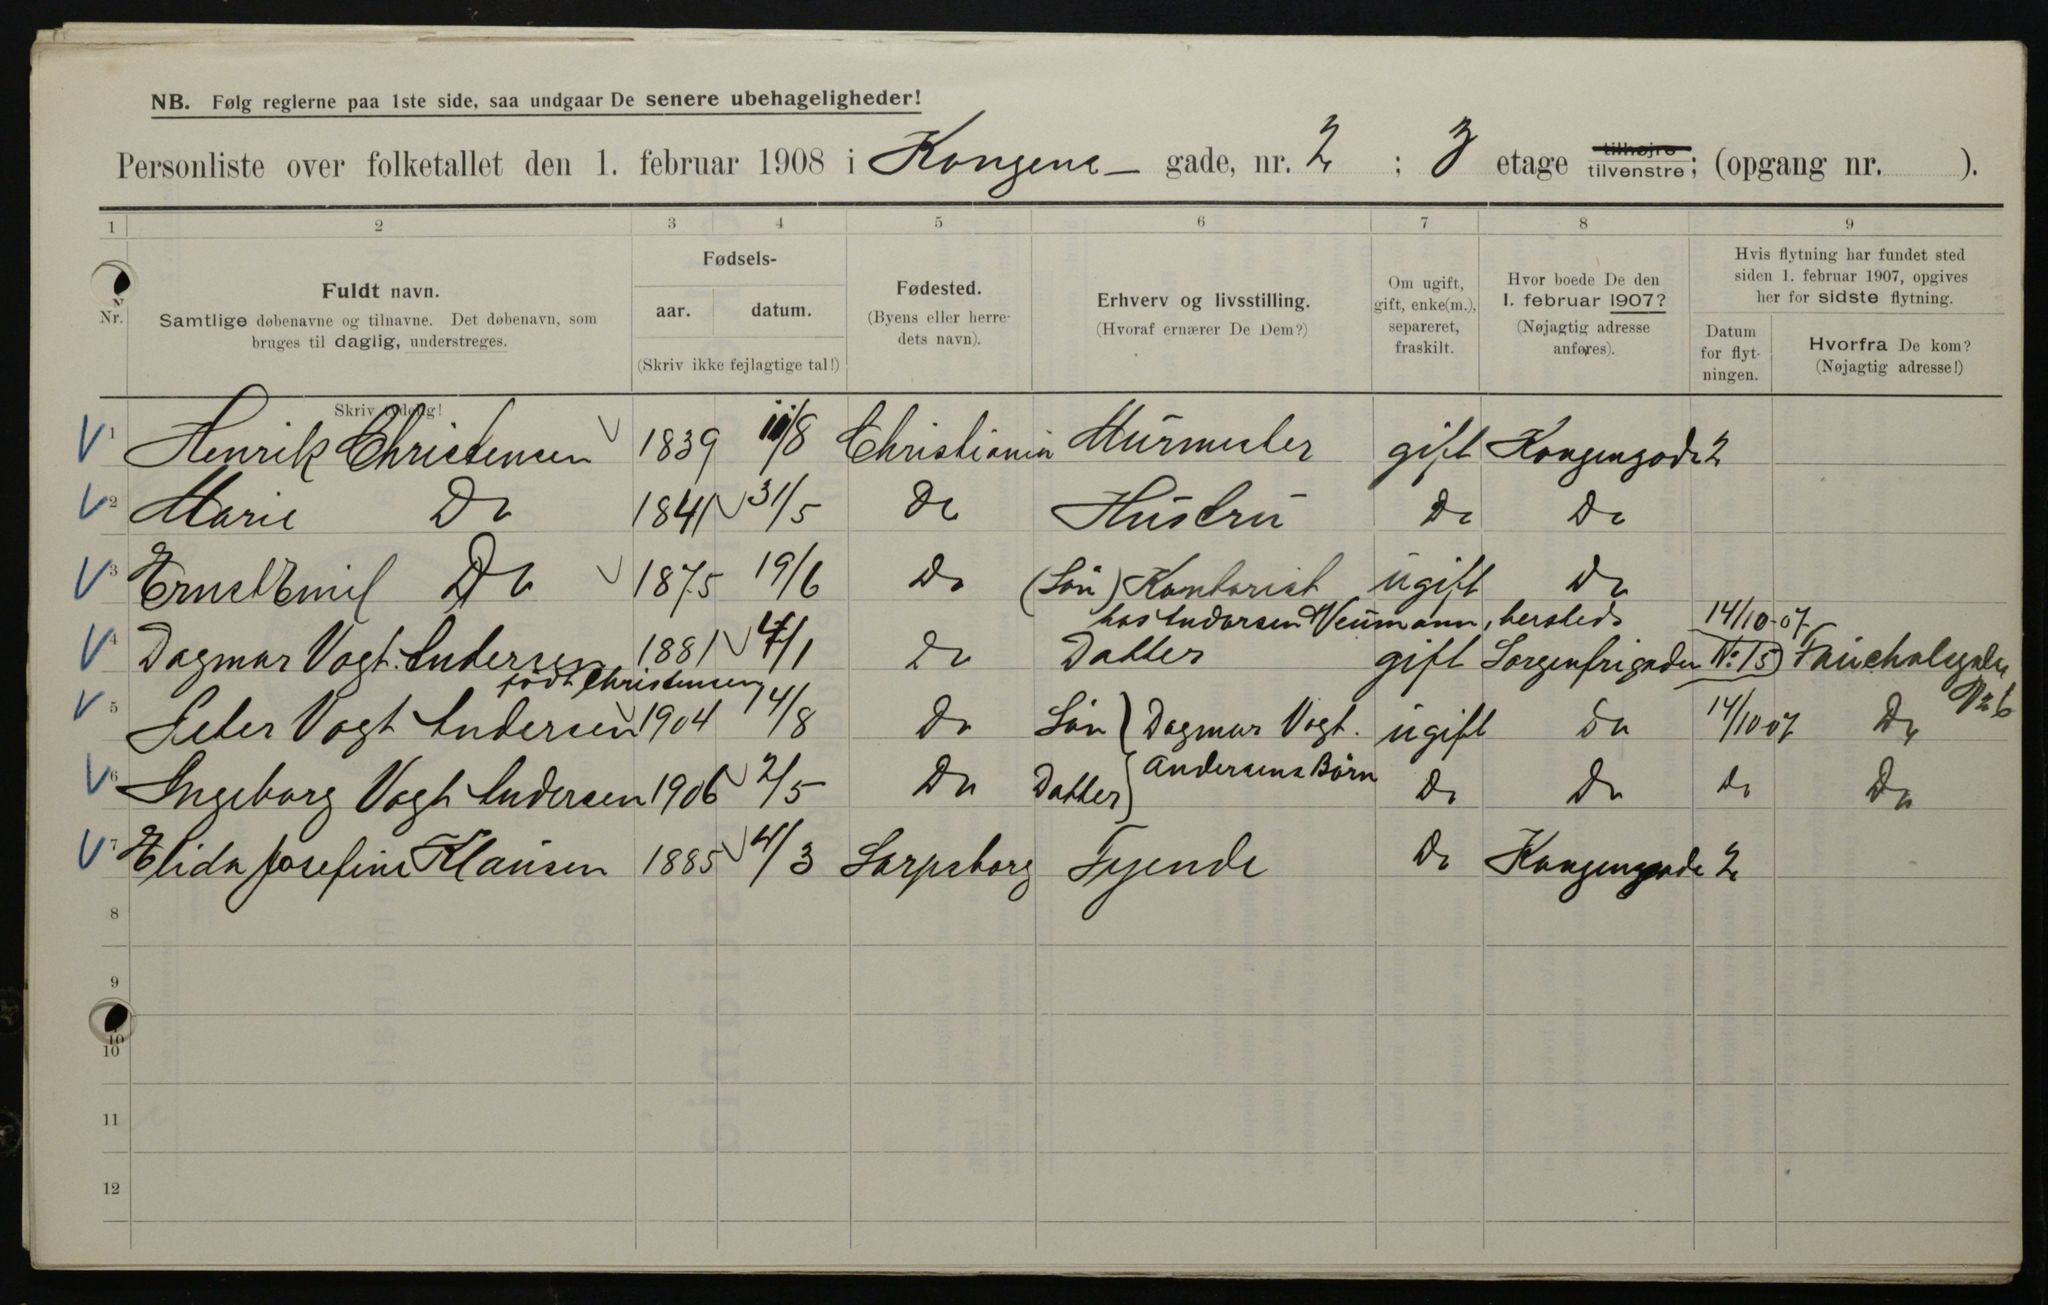 NB. Følg reglerne paa 1ste side, saa undgaar De senere ubehageligheder!
Personliste over folketallet den 1. februar 1908 i Kongens- gade, nr. 2 ; 3 etage tilhøjre tilvenstre; (opgang nr. ).
1 2 3 4 5 6 7 8 9
Nr.
Fuldt navn.
Samtlige døbenavne og tilnavne. Det døbenavn, som
bruges til daglig, understreges.
Skriv tydelig!
Fødsels-
aar. datum.
(Skriv ikke fejlagtige tal!)
Fødested.
(Byens eller herre-
dets navn).
Erhverv og livsstilling.
(Hvoraf ernærer De Dem?)
Om ugift,
gift, enke(m.),
separeret,
fraskilt.
Hvor boede De den
1. februar 1907?
(Nøjagtig adresse
anføres).
Hvis flytning har fundet sted
siden 1. februar 1907, opgives
her for sidste flytning.
Datum
for flyt-
ningen.
Hvorfra De kom?
(Nøjagtig adresse!)
V 1 Henrik Christensen 1839 11/8 Christiania Murmester gift Kongensgade 2
V 2 Marie Do 1841 31/5 Do Hustru Do Do
V 3 Ernst Emil Do 1875 19/6 Do (Søn) Kontorist ugift Do
hos Andersen Neumann, hersteds 14/10-07
V 4 Dagmar Vogt Andersen 1881 4/1 Do Datter gift Sorgenfrigaden No 15 Fauchaldsgaden
født Christensen No 6
V 5 Peter Vogt Andersen 1904 14/8 Do Søn } Dagmar Vogt. ugift Do 14/10 07 Do
V 6 Ingeborg Vogt Andersen 1906 2/5 Do Datter } Andersens Børn Do Do Do Do
V 7 Elida Josefine Klausen 1885 4/3 Sarpsborg Tyende Do Kongensgade 2
8
9
10
10
11
12